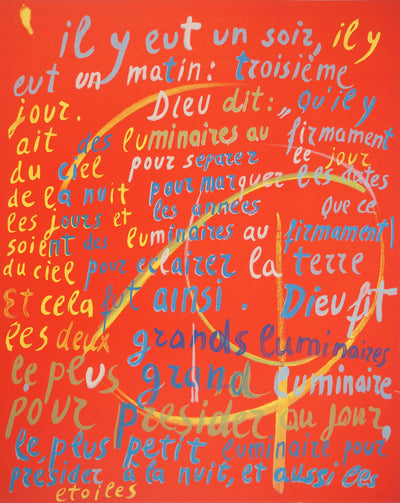 il y eut un soir, il y
eut un matin: troisième
jour. Dieu dit: „ qu'il y
ait des luminaires au firmament
du ciel pour separer le jour
de la nuit pour marquer les dates
les jours et les années que ce
soient des luminaires au firmament
du ciel pour eclairer la terre
Et cela fut ainsi. Dieu fit
les deux grands luminaires
le plus grand luminaire
pour presider au jour,
le plus petit luminaire pour
presider à la nuit, et aussi les
etoiles